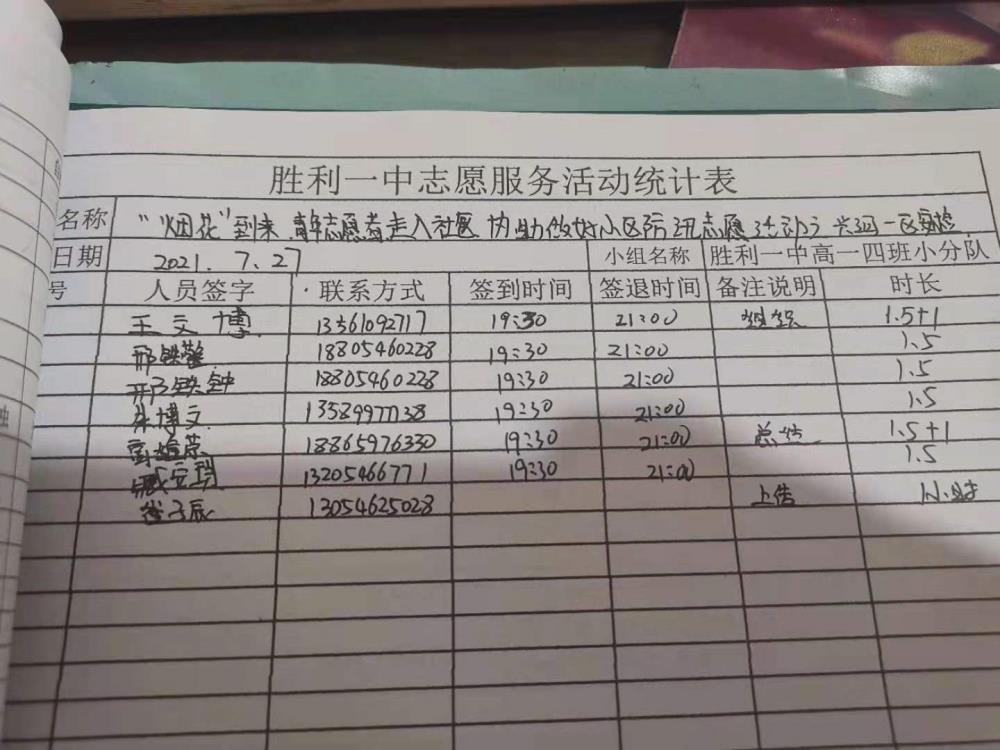 胜利一中志愿服务活动统计表
名称 "烟花"到来 青年志愿者走入社区 协助做好小区防汛志愿活动
日期 2021.7.27 小组名称 胜利一中高一四班小分队
号 人员签字 联系方式 签到时间 签退时间 备注说明 时长
王文博 13561092717 19:30 21:00 组织 1.5+1
邢铁 18805460228 19:30 21:00 1.5
邢铁钟 18805460228 19:30 21:00 1.5
朱博文 13589977738 19:30 21:00 1.5
18865976330 19:30 21:00 总结 1.5+1
13205466771 19:30 21:00 1.5
子辰 13054625028 上传 1小时